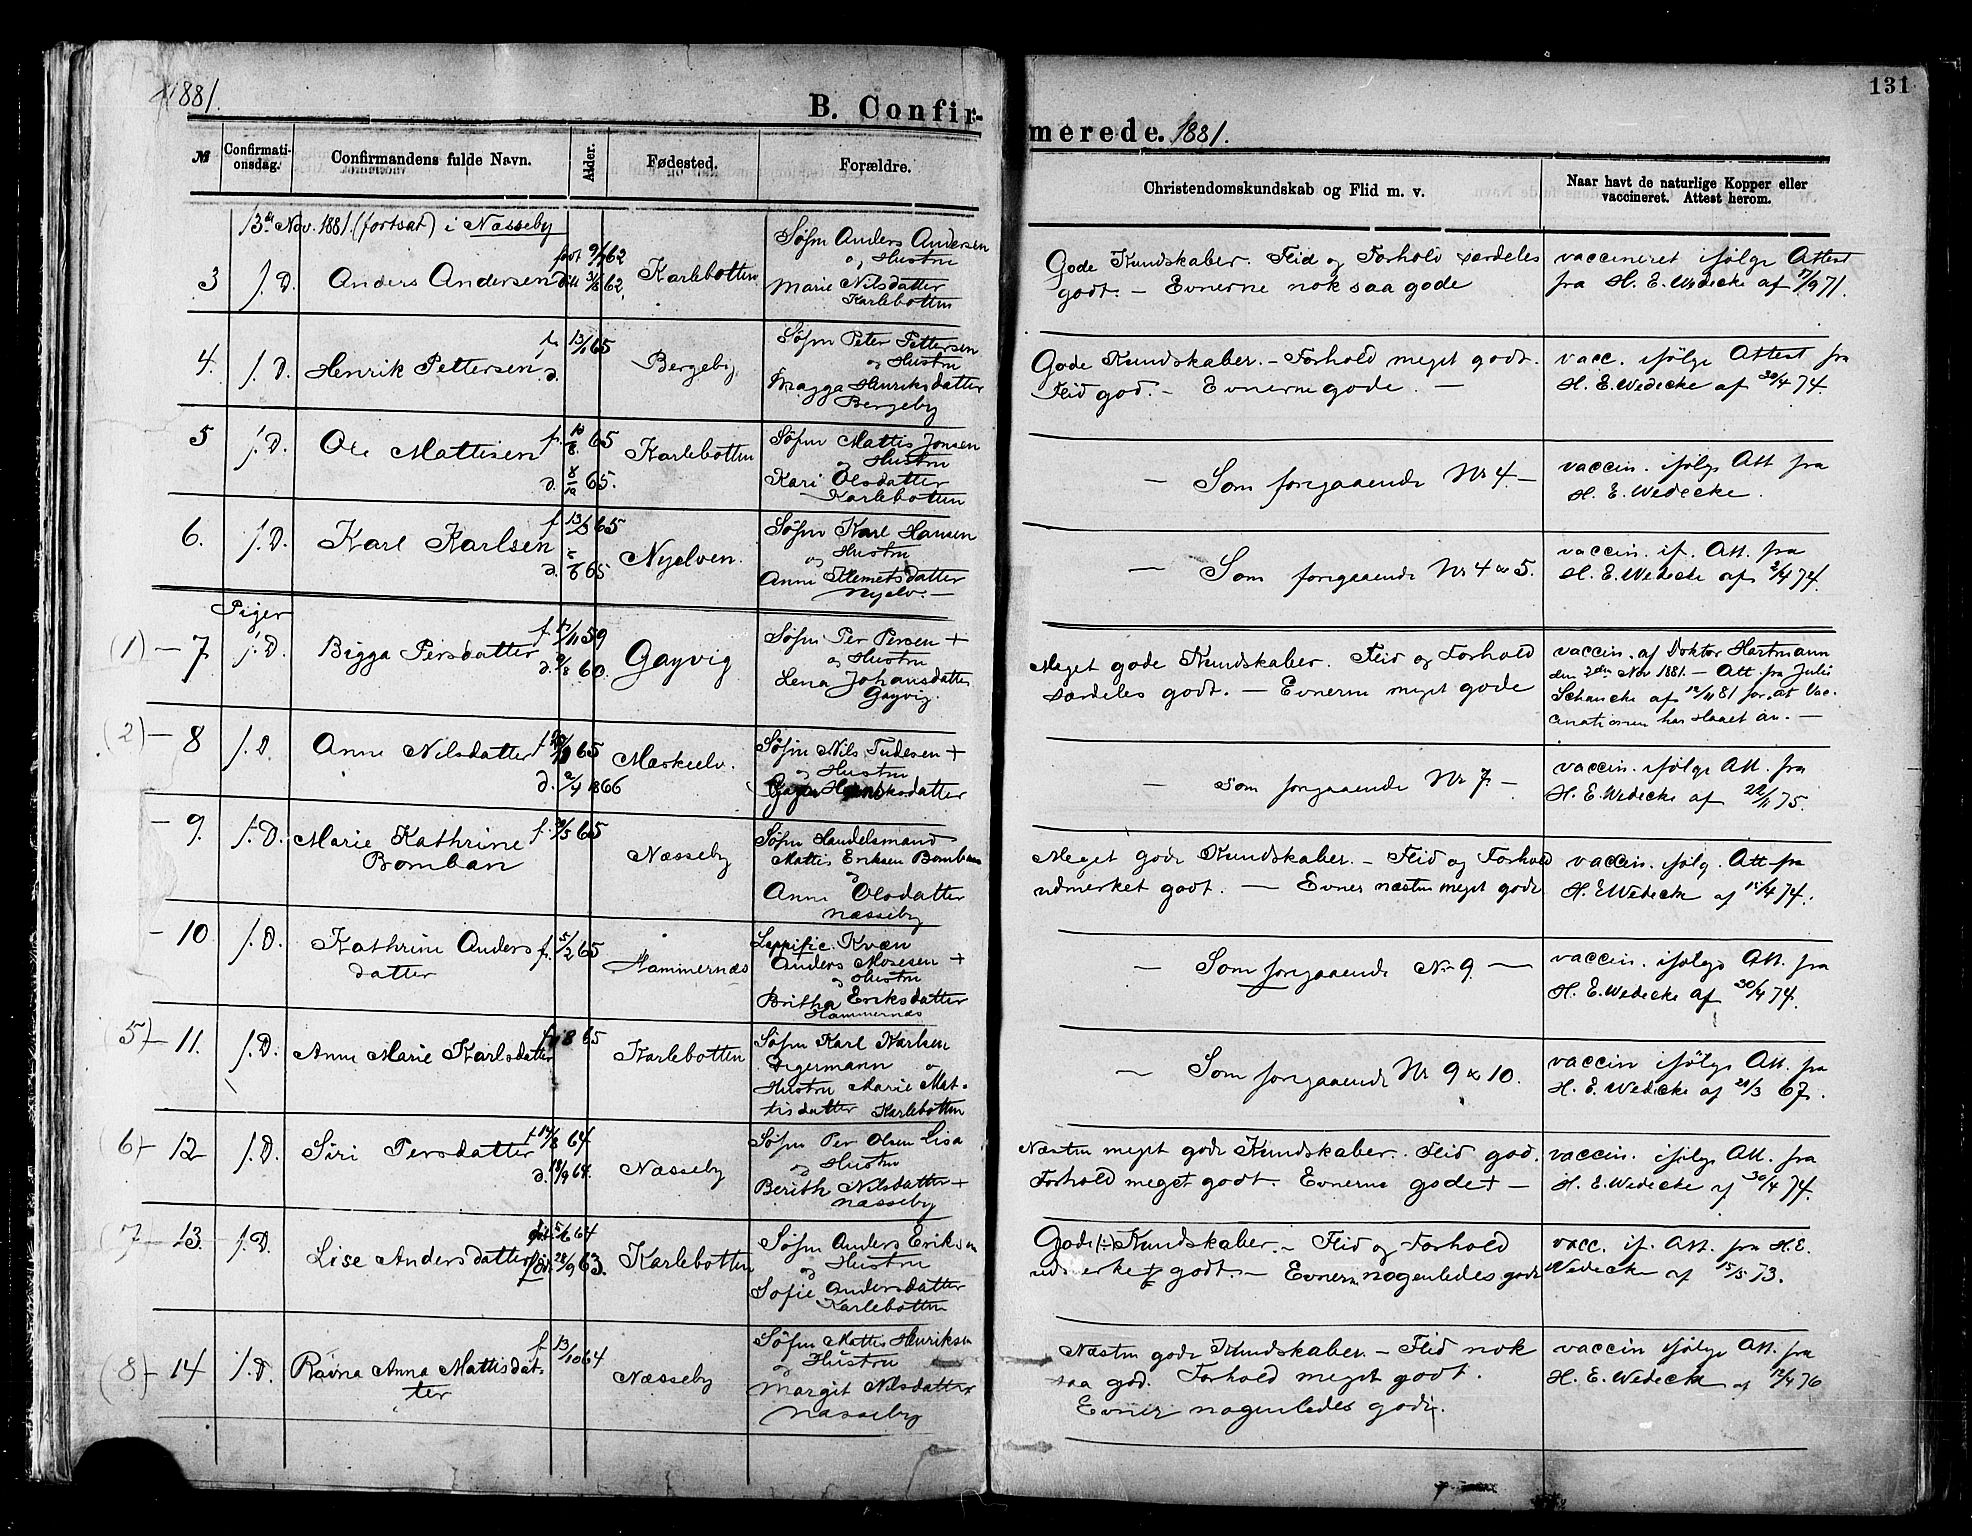 1881.
B. Confir-
merede. 1881.
131
№
Confirmati-
onsdag.
Confirmandens fulde Navn.
Alder.
Fødested.
Forældre.
Christendomskundskab og Flid m. v.
Naar havt de naturlige Kopper eller
vaccineret. Attest herom.
13de Nov. 1881. (fortsat) i Næsseby
3 f. D. Anders Andersen født 9/7 62 Karlebotten
Søfin Anders Andersen
og Hustru
Marie Nilsdatter
Karlebotten
Gode Kundskaber. Flid og Forhold særdeles
godt. - Evnerne nok saa gode
vaccineret ifølge Attest
fra H. E. Wedecke af 7/9 71.
4. f. D. Henrik Pettersen f. 13/1 65 d. Bergeby
Søfin Peter Pettersen
og Hustru
Magga Henriksdatter
Bergeby
Gode Kundskaber. - Forhold meget godt.
Flid god. - Evnerne gode. -
vacc. ifølge Attest fra
H. E. Wedecke af 30/4 74.
5 f. D. Ole Mattisen f. 65 d. 8/10 65. Karlebotten
Søfin Mattis Jonsen
og Hustru
Kari Olsdatter
Karlebotten
- Som foregaaende Nr 4. -
vaccin. ifølge Att fra
H. E. Wedecke.
6. f. D. Karl Karlsen f. 13/3 65 d. 65 Nyelven.
Søfin Karl Hansen
og Hustru
Anne Klemetsdatter
Nyelv. -
- Som foregaaende Nr 4 & 5.
vaccin. if. Att. fra
H. E. Wedecke af 2/4 74.
Piger
(1) - 7 f. D. Bigga Persdatter f. 59 d. 60. Gayvig
Søfin Per Persen +
og Hustru
Lena Johansdatter
Gayvig.
Meget gode Kundskaber. Flid og Forhold
særdeles godt. - Evnerne meget gode
vaccin. af Doktor Hartmann
den 2den Nov 1881. - Att. fra Julie
Schancke af 12/11 81 for, at Vac-
cinationen har slaaet an. -
(2) - 8 f. D. Anne Nilsdatter f. 65 d. 2/4 1866 Mæskeelv.
Søfin Nils Tudesen +
og Hustru
Henriksdatter
- Som foregaaende Nr 7. -
vaccin. ifølge Att. fra
H. E. Wedecke af 22/11 75.
- 9. f. D. Marie Kathrine f. 65 Næsseby
Bomban
Søfin Handelsmand
Mattis Eriksen Bomban
og
Anne Olsdatter
Næsseby
Meget gode Kundskaber. - Flid og Forhold
udmerket godt. - Evner næsten meget gode
vaccin. ifølg. Att fra
H. E. Wedecke af 15/4 74.
- 10 f. D. Kathrine Anders f. 5/2 65 Hammernæs
datter
Kvæn
Anders Mosesen +
og Hustru
Britha Eriksdatter
Hammernæs
- Som foregaaende Nr 9 -
vaccin. ifølge Att. fra
H. E. Wedecke af 30/4 74.
5) - 11. f. D. Anne Marie Karlsdatter 65 Karlebotten
Søfin Karl Karlsen
og
Hustru Marie Mat-
tisdatter Karlebotten
- Som foregaaende Nr 9 & 10.
vaccin ifølge Att. fra
H. E. Wedecke af 21/3 67.
(6) - 12 f. D. Siri Persdatter f. 14/8 64 d. 18/9 64. Næsseby
Søfin Per Olsen Lisa
og Hustru
Berith Nilsdatter +
Næsseby
Næsten meget gode Kundskaber. Flid god.
Forhold meget godt. Evnerne gode + -
vaccin. ifølge Att. fra
H. E. Wedecke af 30/4 74.
(7 - 13. f. D. Lise Andersdatter 5/6 64 28/9 63. Karlebotten
Søfin Anders Eriksen
og Hustru
Sofie Andersdatter
Karlebotten
Gode (÷) Kundskaber. - Flid og Forhold
udmerket godt. - Evnern nogenledes gode
vacc. if. Att. fra H. E.
Wedecke af 15/5 73.
(8) - 14 f. D. Ravna Anna Mattisdat- f. 13/10 64 Næsseby
ter
Søfin Mattis Henriksen
og Hustru
Margit Nilsdatter
Næsseby
Næsten gode Kundskaber. - Flid nok
saa god. Forhold meget godt.
Evner nogenledes gode.
vaccin ifølge Att. fra
H. E. Wedecke af 12/4 76